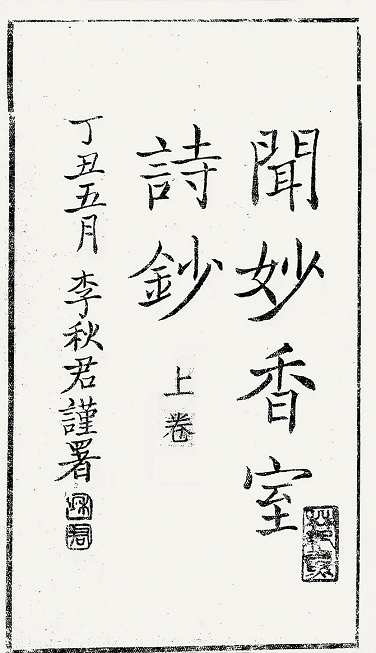 聞妙香室
詩鈔 上卷
丁丑五月 李秋君謹署
秋君